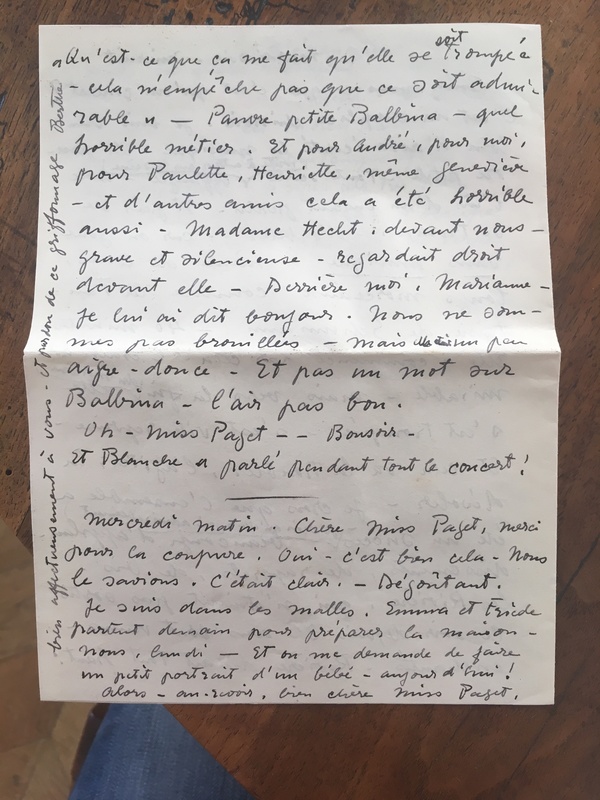 « Qu'est-ce que ça me fait qu'elle se soit trompée
- cela n'empêche pas que ce soit admi-
rable » — Pauvre petite Balbina - quel
horrible métier. Et pour André, pour moi,
pour Paulette, Henriette, même Geneviève
- et d'autres amis cela a été horrible
aussi - Madame Hecht, devant nous -
grave et silencieuse - regardait droit
devant elle - Derrière moi, Marianne -
Je lui ai dit bonjour. Nous ne som-
mes pas brouillées - mais un peu
aigre-douce - Et pas un mot sur
Balbina - l'air pas bon.
Oh - Miss Paget -- Bonsoir -
Et Blanche a parlé pendant tout le concert !
Mercredi matin. Chère Miss Paget, merci
pour la coupure. Oui - c'est bien cela - Nous
le savions. C'était clair. - Dégoûtant.
Je suis dans les malles. Emma et Friede
partent demain pour préparer la maison -
nous, lundi — Et on me demande de faire
un petit portrait d'un bébé - aujourd'hui !
Alors - au-revoir, bien chère Miss Paget,
bien affectueusement à vous - et pardon de ce griffonnage Berthe